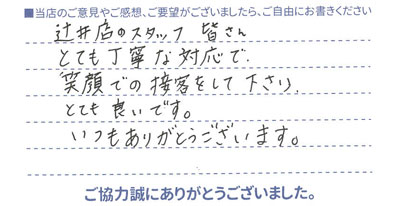 ■当店のご意見やご感想、ご要望がございましたら、ご自由にお書きください
辻井店のスタッフ 皆さん
とても丁寧な対応で
笑顔での接客をして下さり、
とても良いです。
いつもありがとうございます。
ご協力誠にありがとうございました。